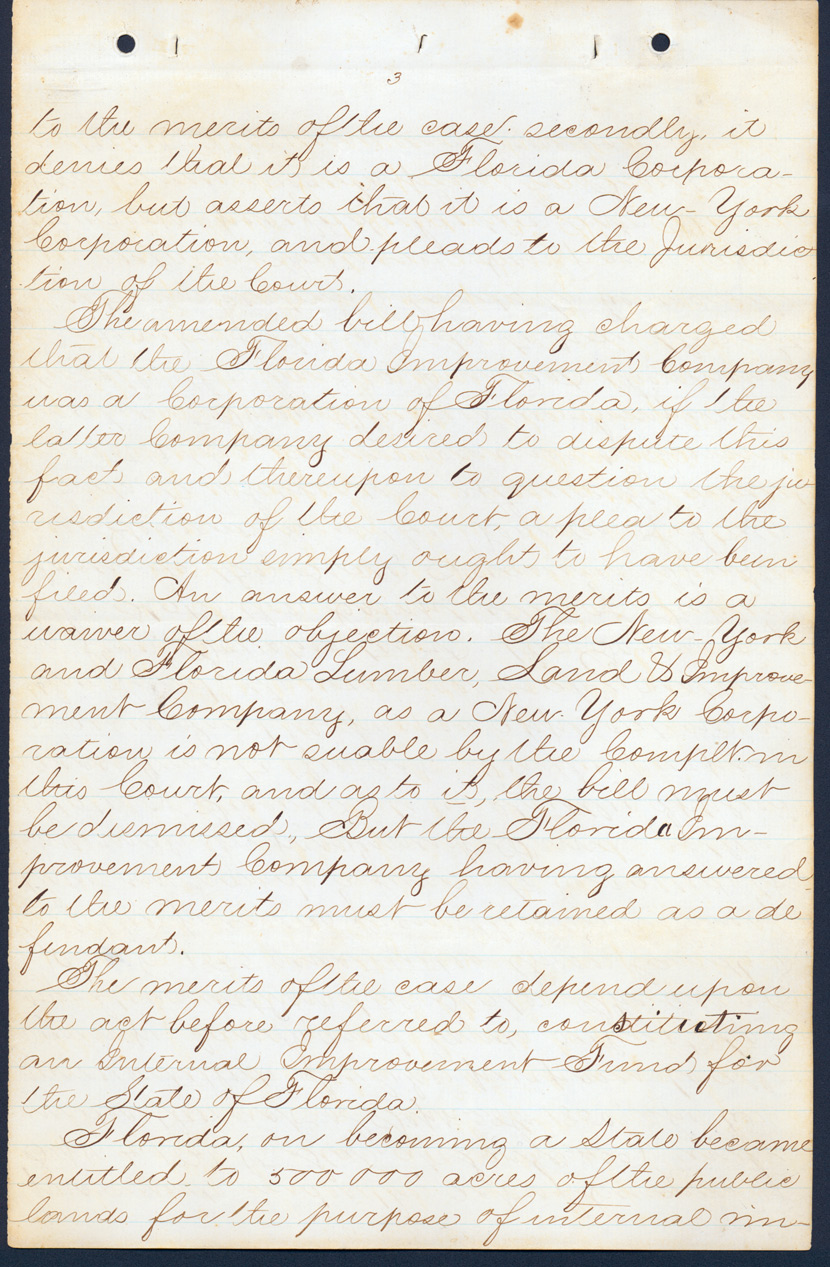 3
to the merits of the case. secondly, it
denies that it is a Florida Corpora-
tion, but asserts that it is a New-York
Corporation, and pleads to the Jurisdic
tion of the Court.
The amended bill having charged
that the Florida Improvement Company
was a Corporation of Florida, if the
latter Company desired to dispute this
fact and thereupon to question the ju
risdiction of the Court, a plea to the
jurisdiction simply ought to have been
filed. An answer to the merits is a
waiver of the objection. The New-York
and Florida Lumber, Land & Improve-
ment Company, as a New-York Corpo-
ration is not suable by the Complt. in
this Court, and as to it, the bill must
be dismissed, But the Florida Im-
provement Company having answered
to the merits must be retained as a de
fendant.
The merits of the case depend upon
the act before referred to, constituting
an Internal Improvement Fund for
the State of Florida.
Florida, on becoming a State became
entitled to 500000 acres of the public
lands for the purpose of internal im-